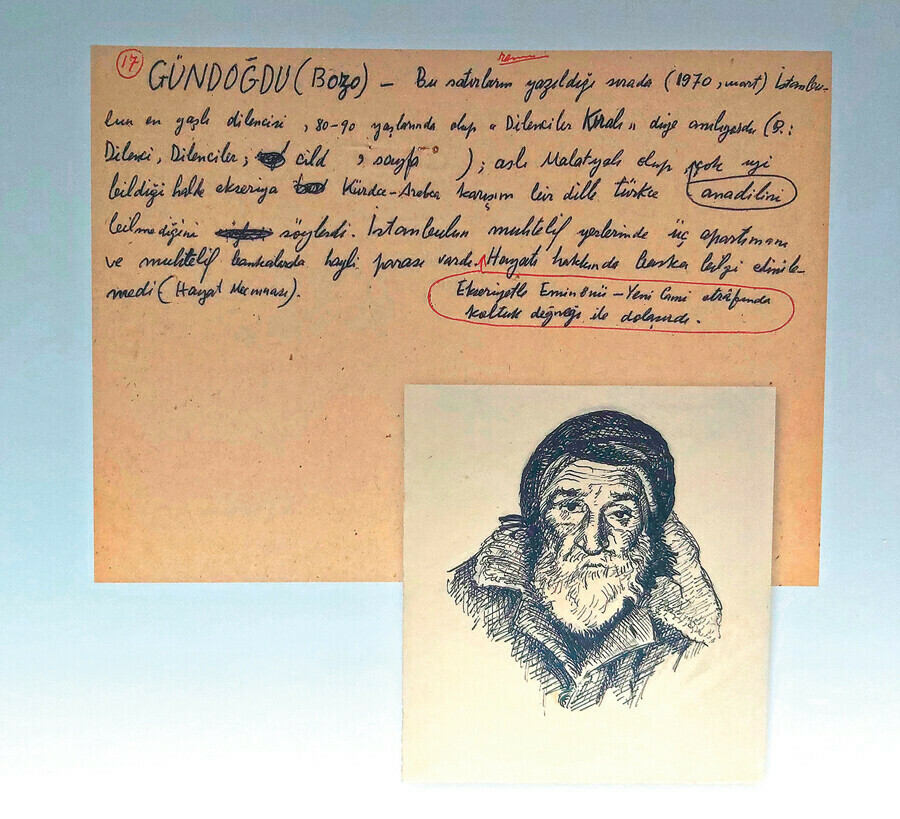 17
resmi
GÜNDOĞDU (Bozo) — Bu satırların yazıldığı sırada (1970, mart) İstanbu-
lun en yaşlı dilencisi, 80-90 yaşlarında olup "Dilenciler Kıralı" diye anılıyordu (B.:
Dilenci, Dilenciler; cild , sayfa ); aslı Malatyalı olup çok iyi
bildiği halde ekseriya Kürdce-Arabca karışım bir dille türkce anadilini
bilmediğini söylerdi. İstanbulun muhtelif yerlerinde üç apartımanı
ve muhtelif bankalarda hayli parası vardı. Hayatı hakkında başka bilgi edinile-
medi (Hayat Mecmuası).
Ekseriyetle Eminönü — Yeni Cami etrâfında
koltuk değneği ile dolaşırdı.